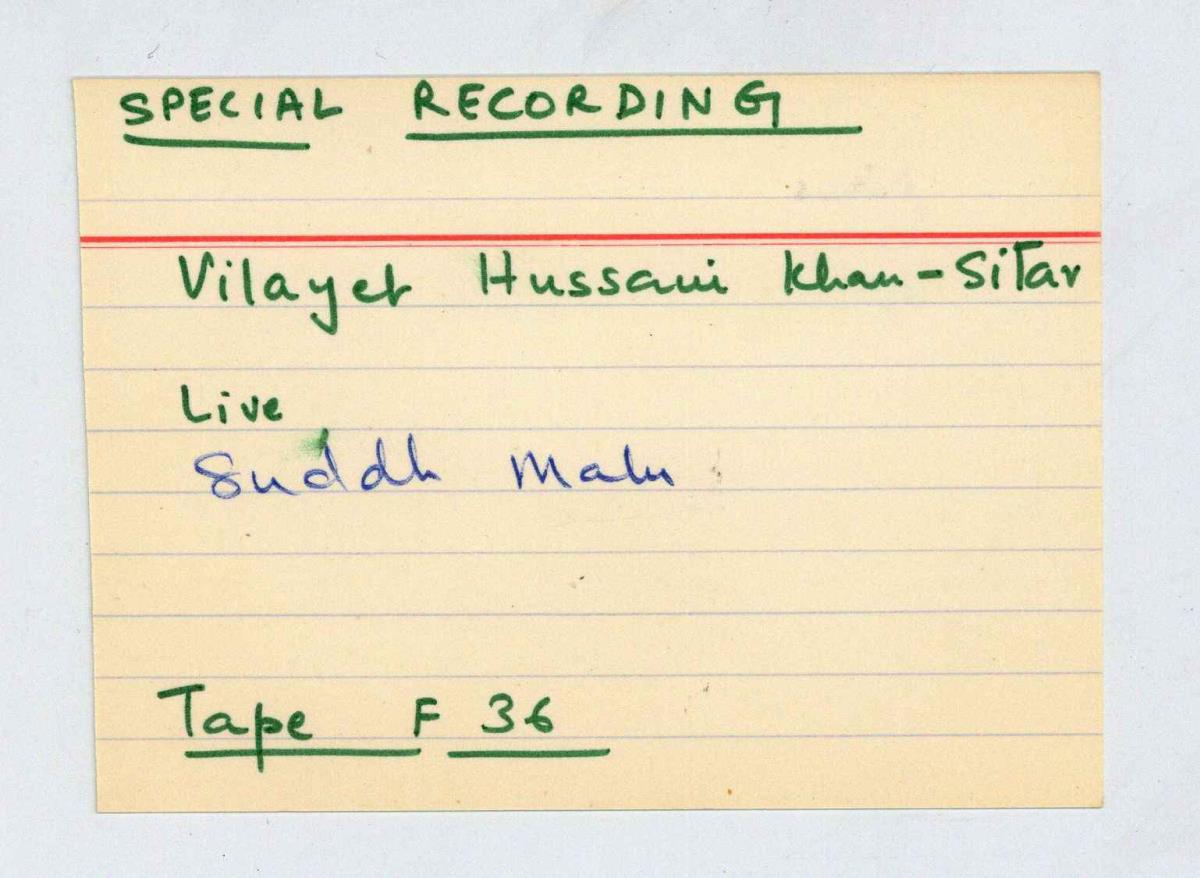 SPECIAL RECORDING
Vilayet Hussain Khan - Sitar
Live
Suddh Malu
Tape F 36